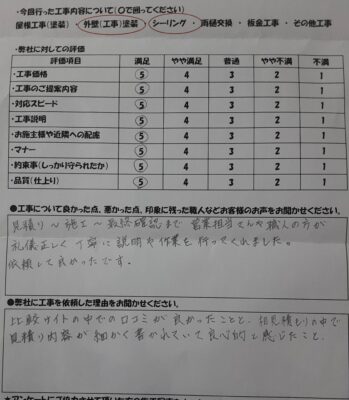 ・今回行った工事内容について(〇で囲ってください)
屋根工事(塗装) ・ 外壁(工事)塗装 ・ シーリング ・ 雨樋交換 ・ 板金工事 ・ その他工事
・弊社に対しての評価
評価項目 満足 やや満足 普通 やや不満 不満
・工事価格 5 4 3 2 1
・工事のご提案内容 5 4 3 2 1
・対応スピード 5 4 3 2 1
・工事説明 5 4 3 2 1
・お施主様や近隣への配慮 5 4 3 2 1
・マナー 5 4 3 2 1
・約束事(しっかり守られたか) 5 4 3 2 1
・品質(仕上り) 5 4 3 2 1
●工事について良かった点、悪かった点、印象に残った職人などお客様のお声をお聞かせください。
見積り~施工~最終確認まで 営業担当さんや職人の方が
礼儀正しく丁寧に説明や作業を行ってくれました。
依頼して良かったです。
●弊社に工事を依頼した理由をお聞かせください。
比較サイトの中での口コミが良かったことと、相見積もりの中で
見積り内容が細かく書かれていて良心的と感じたこと。